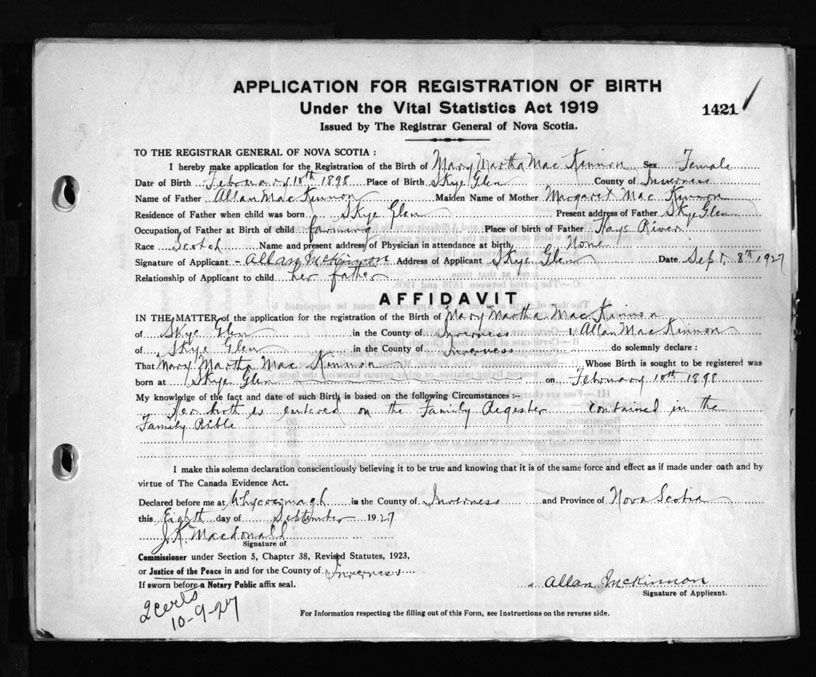 APPLICATION FOR REGISTRATION OF BIRTH
Under the Vital Statistics Act 1919
1421
Issued by The Registrar General of Nova Scotia.
TO THE REGISTRAR GENERAL OF NOVA SCOTIA :
I hereby make application for the Registration of the Birth of Mary Martha Mac Kinnon Sex Female
Date of Birth February 10th 1898 Place of Birth Skye Glen County of Inverness
Name of Father Allan Mac Kinnon Maiden Name of Mother Margaret Mac Kinnon
Residence of Father when child was born Skye Glen Present address of Father Skye Glen
Occupation of Father at Birth of child farming Place of birth of Father Hays River
Race Scotch Name and present address of Physician in attendance at birth None
Signature of Applicant Allan McKinnon Address of Applicant Skye Glen Date Sept. 8th 1927
Relationship of Applicant to child her father
AFFIDAVIT
IN THE MATTER of the application for the registration of the Birth of Mary Martha Mac Kinnon
of Skye Glen in the County of Inverness I, Allan Mac Kinnon
of Skye Glen in the County of Inverness do solemnly declare :
That Mary Martha Mac Kinnon Whose Birth is sought to be registered was
born at Skye Glen on February 10th 1898
My knowledge of the fact and date of such Birth is based on the following Circumstances :—
Her birth is entered on the Family Register contained in the
Family Bible
I make this solemn declaration conscientiously believing it to be true and knowing that it is of the same force and effect as if made under oath and by
virtue of The Canada Evidence Act.
Declared before me at Whycocomagh in the County of Inverness and Province of Nova Scotia
this Eighth day of September 1927
J.K. Macdonald
Signature of
Commissioner under Section 5, Chapter 38, Revised Statutes, 1923,
or Justice of the Peace in and for the County of Inverness
If sworn before a Notary Public affix seal.
Allan McKinnon
Signature of Applicant.
2 certs
10-9-27
For Information respecting the filling out of this Form, see Instructions on the reverse side.